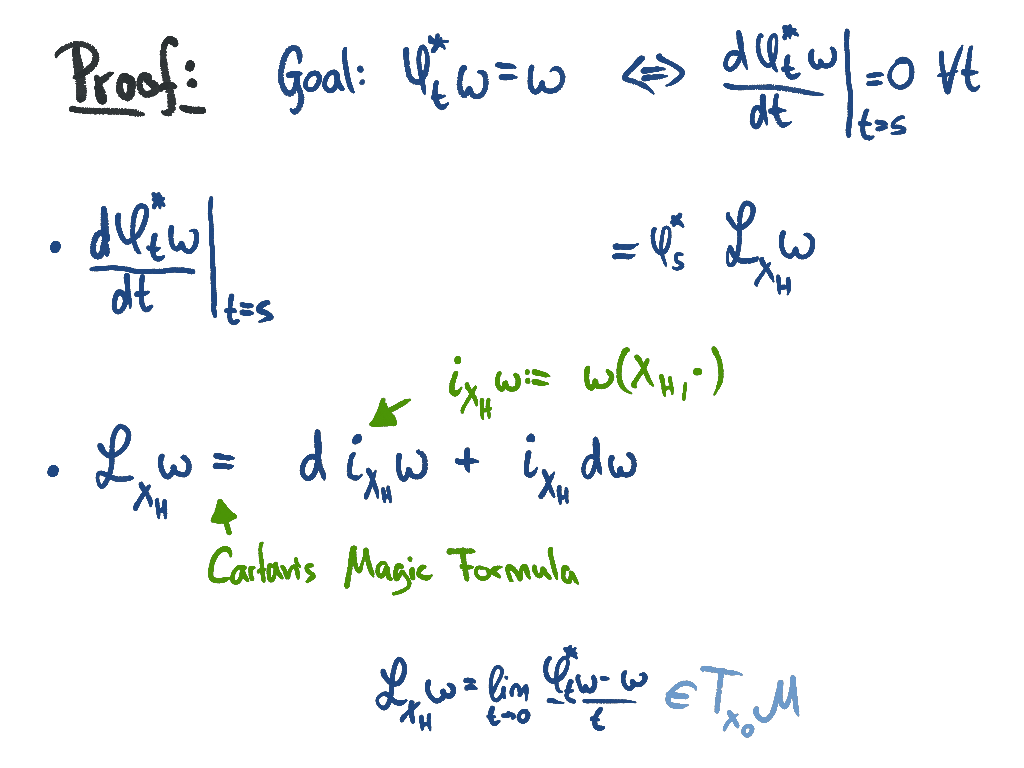 Proof: Goal: φ_t^* ω = ω ⟺ dφ_t^* ω / dt |_{t=s} = 0 ∀t
• dφ_t^* ω / dt |_{t=s} = φ_s^* ℒ_{X_H} ω
i_{X_H} ω := ω(X_H, ·)
• ℒ_{X_H} ω = d i_{X_H} ω + i_{X_H} dω
Cartans Magic Formula
ℒ_{X_H} ω = lim_{t→0} φ_t^* ω - ω / t ∈ T_{x_0} M